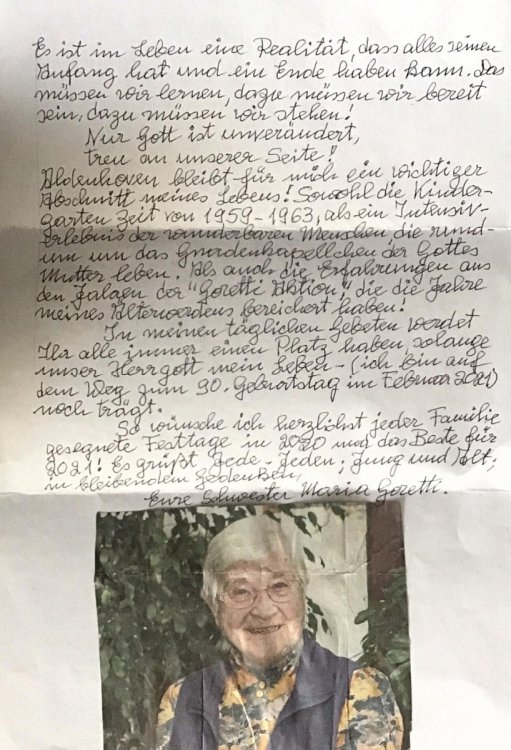 Es ist im Leben eine Realität, dass alles seinen
Anfang hat und ein Ende haben kann. Das
müssen wir lernen, dazu müssen wir bereit
sein, dazu müssen wir stehen!
Nur Gott ist unverändert,
treu an unserer Seite!
Aldenhoven bleibt für mich ein wichtiger
Abschnitt meines Lebens! Sowohl die Kinder-
garten Zeit von 1959-1963, als ein Intensiv-
erlebnis der wunderbaren Menschen, die rund-
um um das Gnadenkapellchen der Gottes
Mutter leben. Als auch die Erfahrungen aus
den Jahren der "Goretti Aktion", die die Jahre
meines Älterwerdens bereichert haben!
In meinen täglichen Gebeten werdet
Ihr alle immer einen Platz haben, solange
unser Herrgott mein Leben - (ich bin auf
dem Weg zum 90. Geburtstag im Februar 2021)
noch trägt.
So wünsche ich herzlichst jeder Familie
gesegnete Festtage in 2020 und das Beste für
2021! Es grüßt Jede-Jeden; Jung und Alt,
in bleibendem Gedenken,
Eure Schwester Maria Goretti.